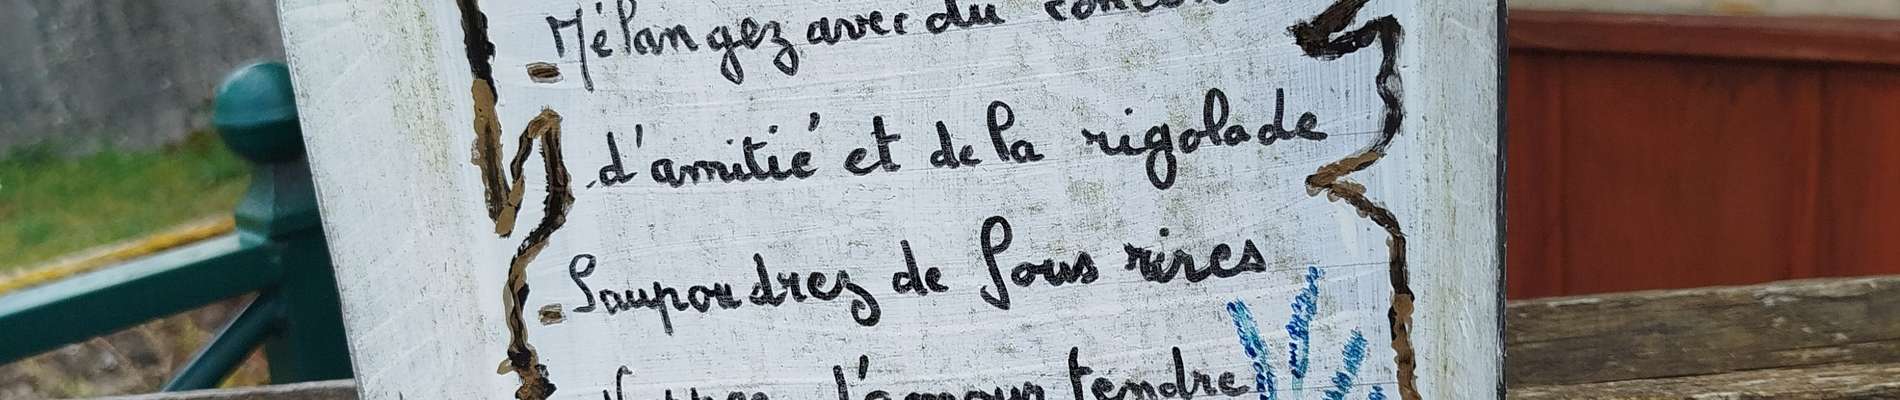 - Mélangez avec du
d'amitié et de la rigolade
- Saupoudrez de fous rires
d'amour tendre